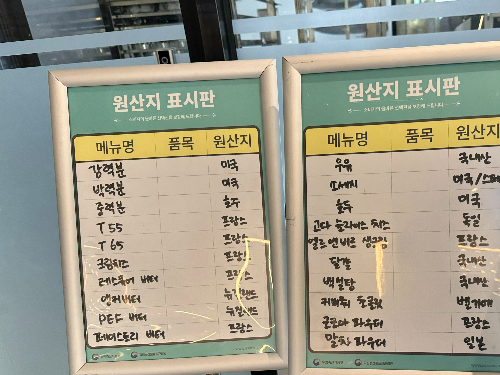 원산지 표시판
메뉴명 품목 원산지
강력분 미국
박력분 미국
중력분 호주
T 55 프랑스
T 65 프랑스
크림치즈 프랑스
레스큐어 버터 프랑스
앵커버터 뉴질랜드
PEF 버터 뉴질랜드
페이스트리 버터 프랑스
원산지 표시판
메뉴명 품목 원산지
우유 국내산
소세지 미국/스페
호두 미국
고다 슬라이스 치즈 독일
엘르앤비르 생크림 프랑스
달걀 국내산
백설탕 국내산
커버춰 초콜릿 벨기에
코코아 파우더 프랑스
말차 파우더 일본